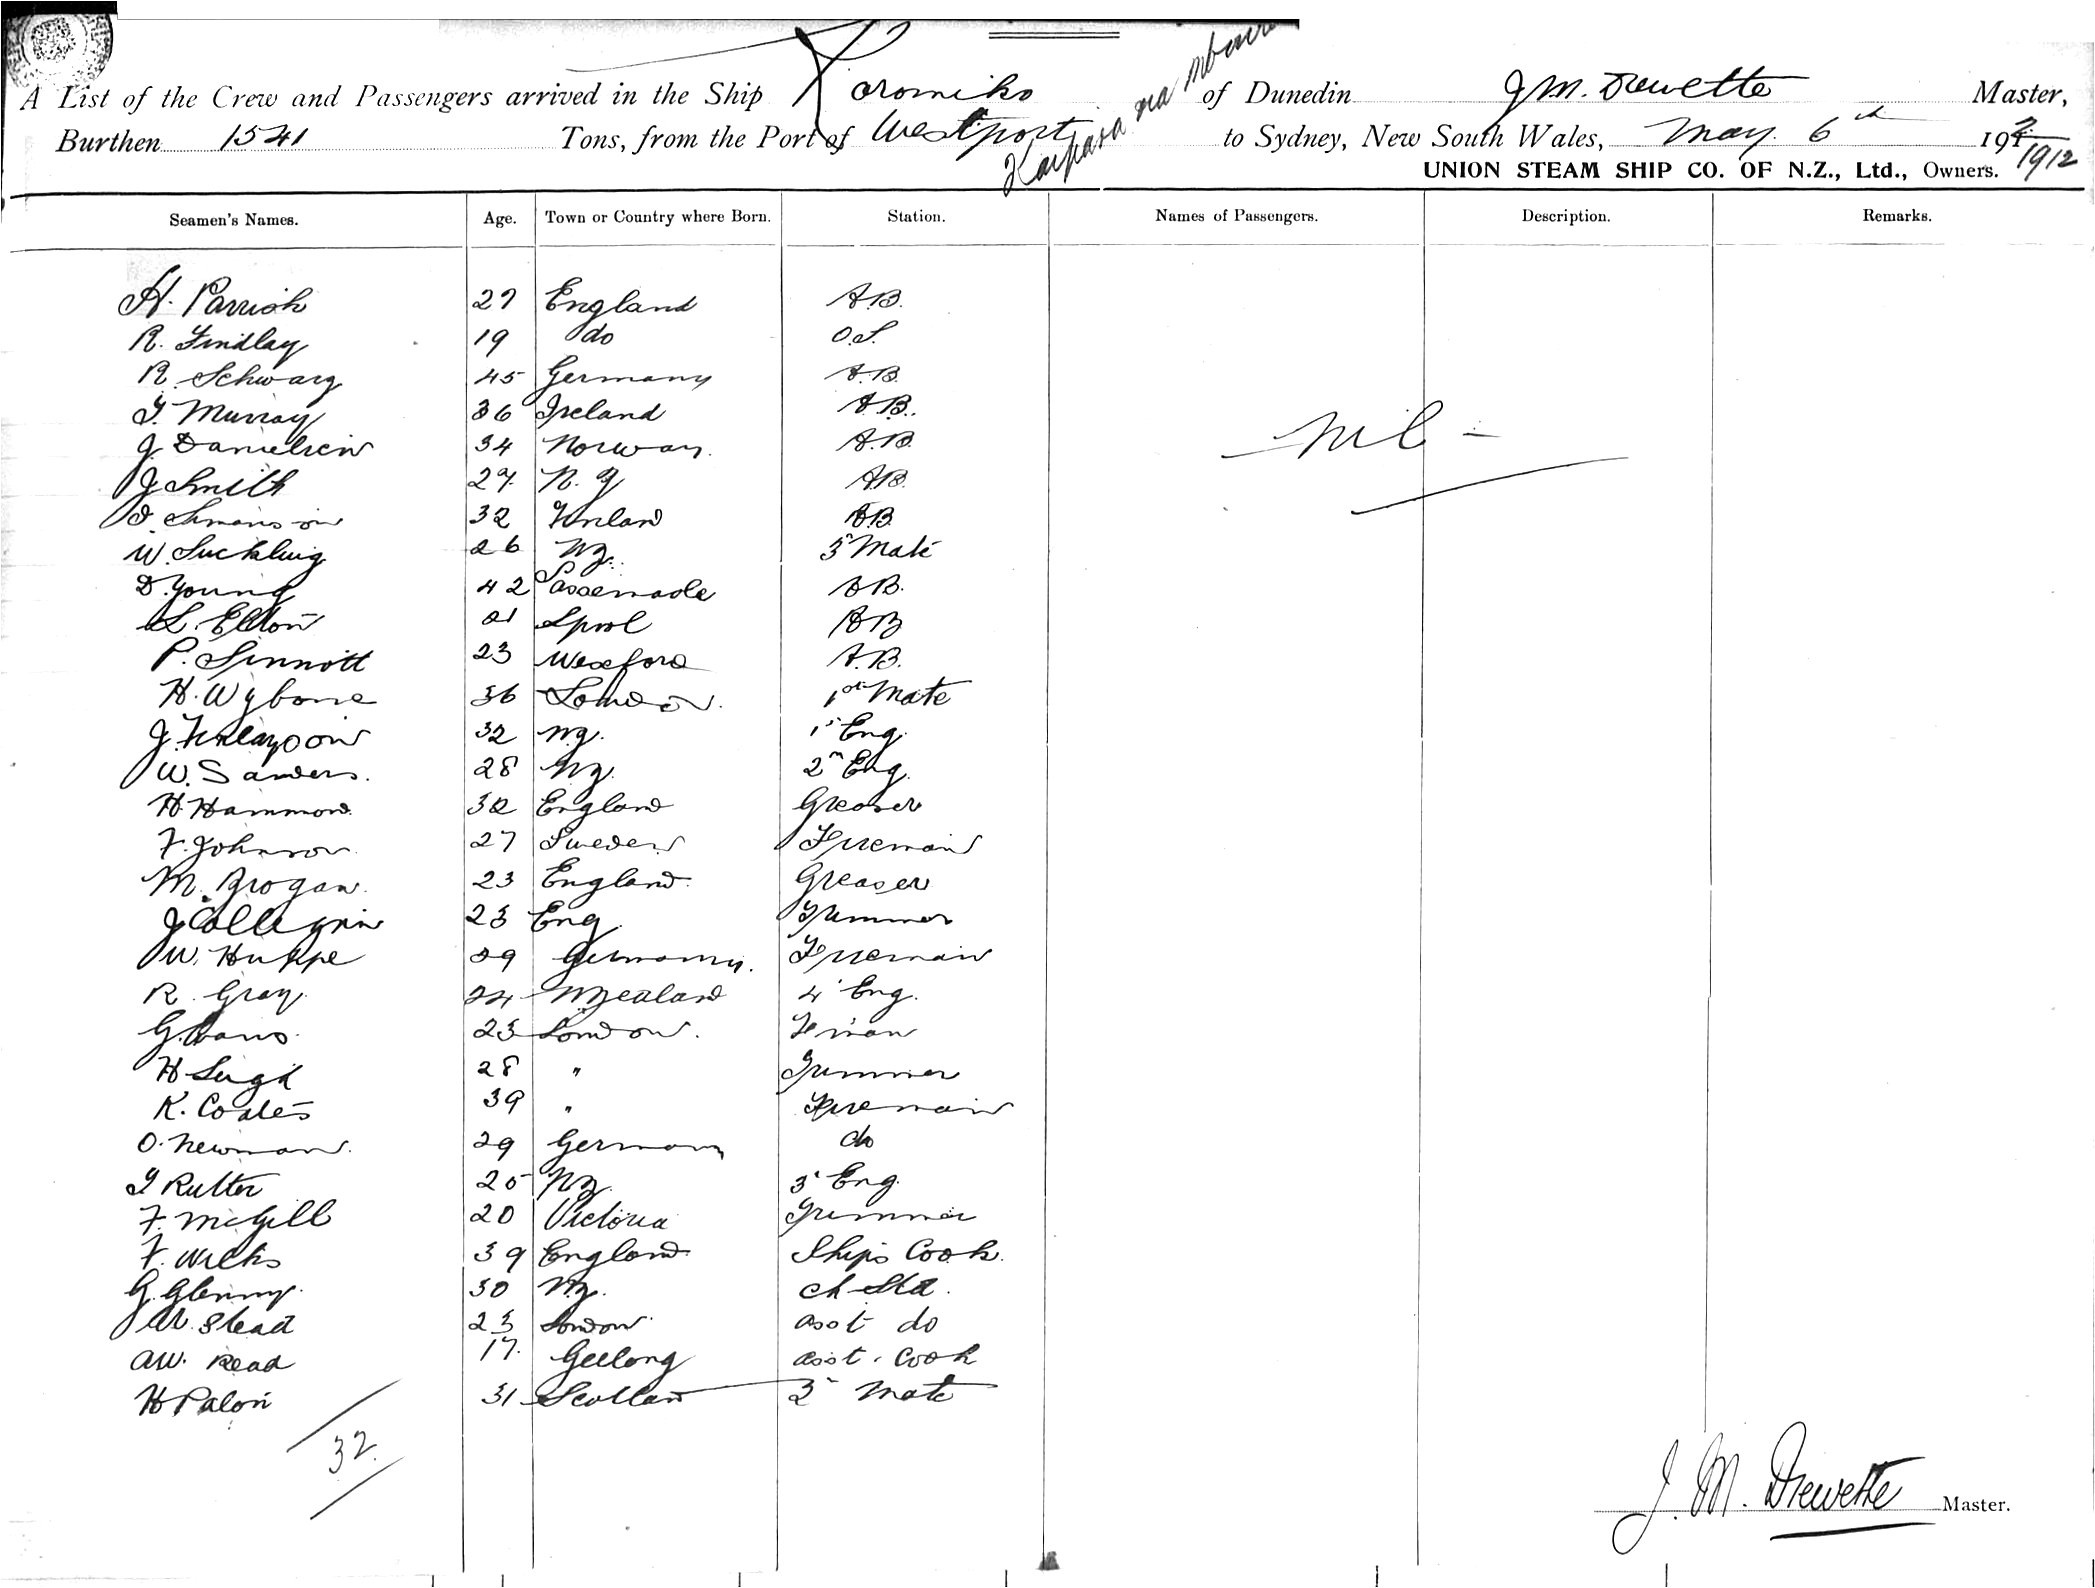 A List of the Crew and Passengers arrived in the Ship Koromiko of Dunedin J M. Drewette Master,
Burthen 1541 Tons, from the Port of Westport Kaipara via to Sydney, New South Wales, May 6th 191 1912
UNION STEAM SHIP CO. OF N.Z., Ltd., Owners.
Seamen's Names. Age. Town or Country where Born. Station. Names of Passengers. Description. Remarks.
H. Parrish 27 England A.B.
R. Findlay 19 do O.S.
R. Schwarz 45 Germany A.B.
T. Murray 36 Ireland A.B.
J Danielsen 34 Norway. A.B.
nil -
J Smith 27 N. Z A.B.
32 Finland A.B.
W. Suckling 26 NZ. 3 Mate
D. Young 42 A.B.
L. Elton 21 Lpool AB
P. Sinnott 23 Wexford A.B.
H. Wybone 36 London. 1st Mate
J. Finlayson 32 NZ. 1st Eng.
W. Sanders. 28 NZ. 2n Eng.
H Hammond. 32 England Greaser
F. Johnson 27 Sweden Fireman
M. Brogan. 23 England. Greaser
J 23 Eng Trimmer
W. Huppe 29 Germany. Fireman
R. Gray. 24 NZealand 4 Eng.
G. Evans. 23 London. Fman
H Leigh 28 " Trimmer
K. Coates 39 " Fireman
O. Newman. 29 German do
T Rutter 25 NZ. 3 Eng.
F. McGill 20 Victoria Trimmer
F. Wilks 39 England Ships Cook.
G. Glenny. 30 NZ. Ch Std.
W. Stead 23 London asst do
AW. Read 17. Geelong asst. Cook
H Paton 31 Scotlan 2 Mate
32.
J. M. Drewette Master.